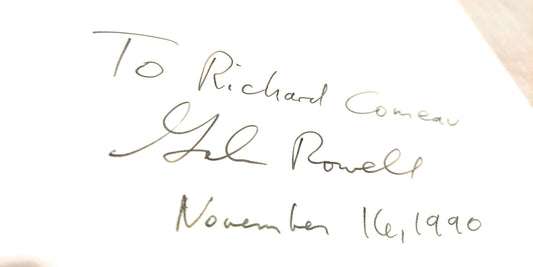 To Richard Comeau
Galen Rowell
November 16, 1990